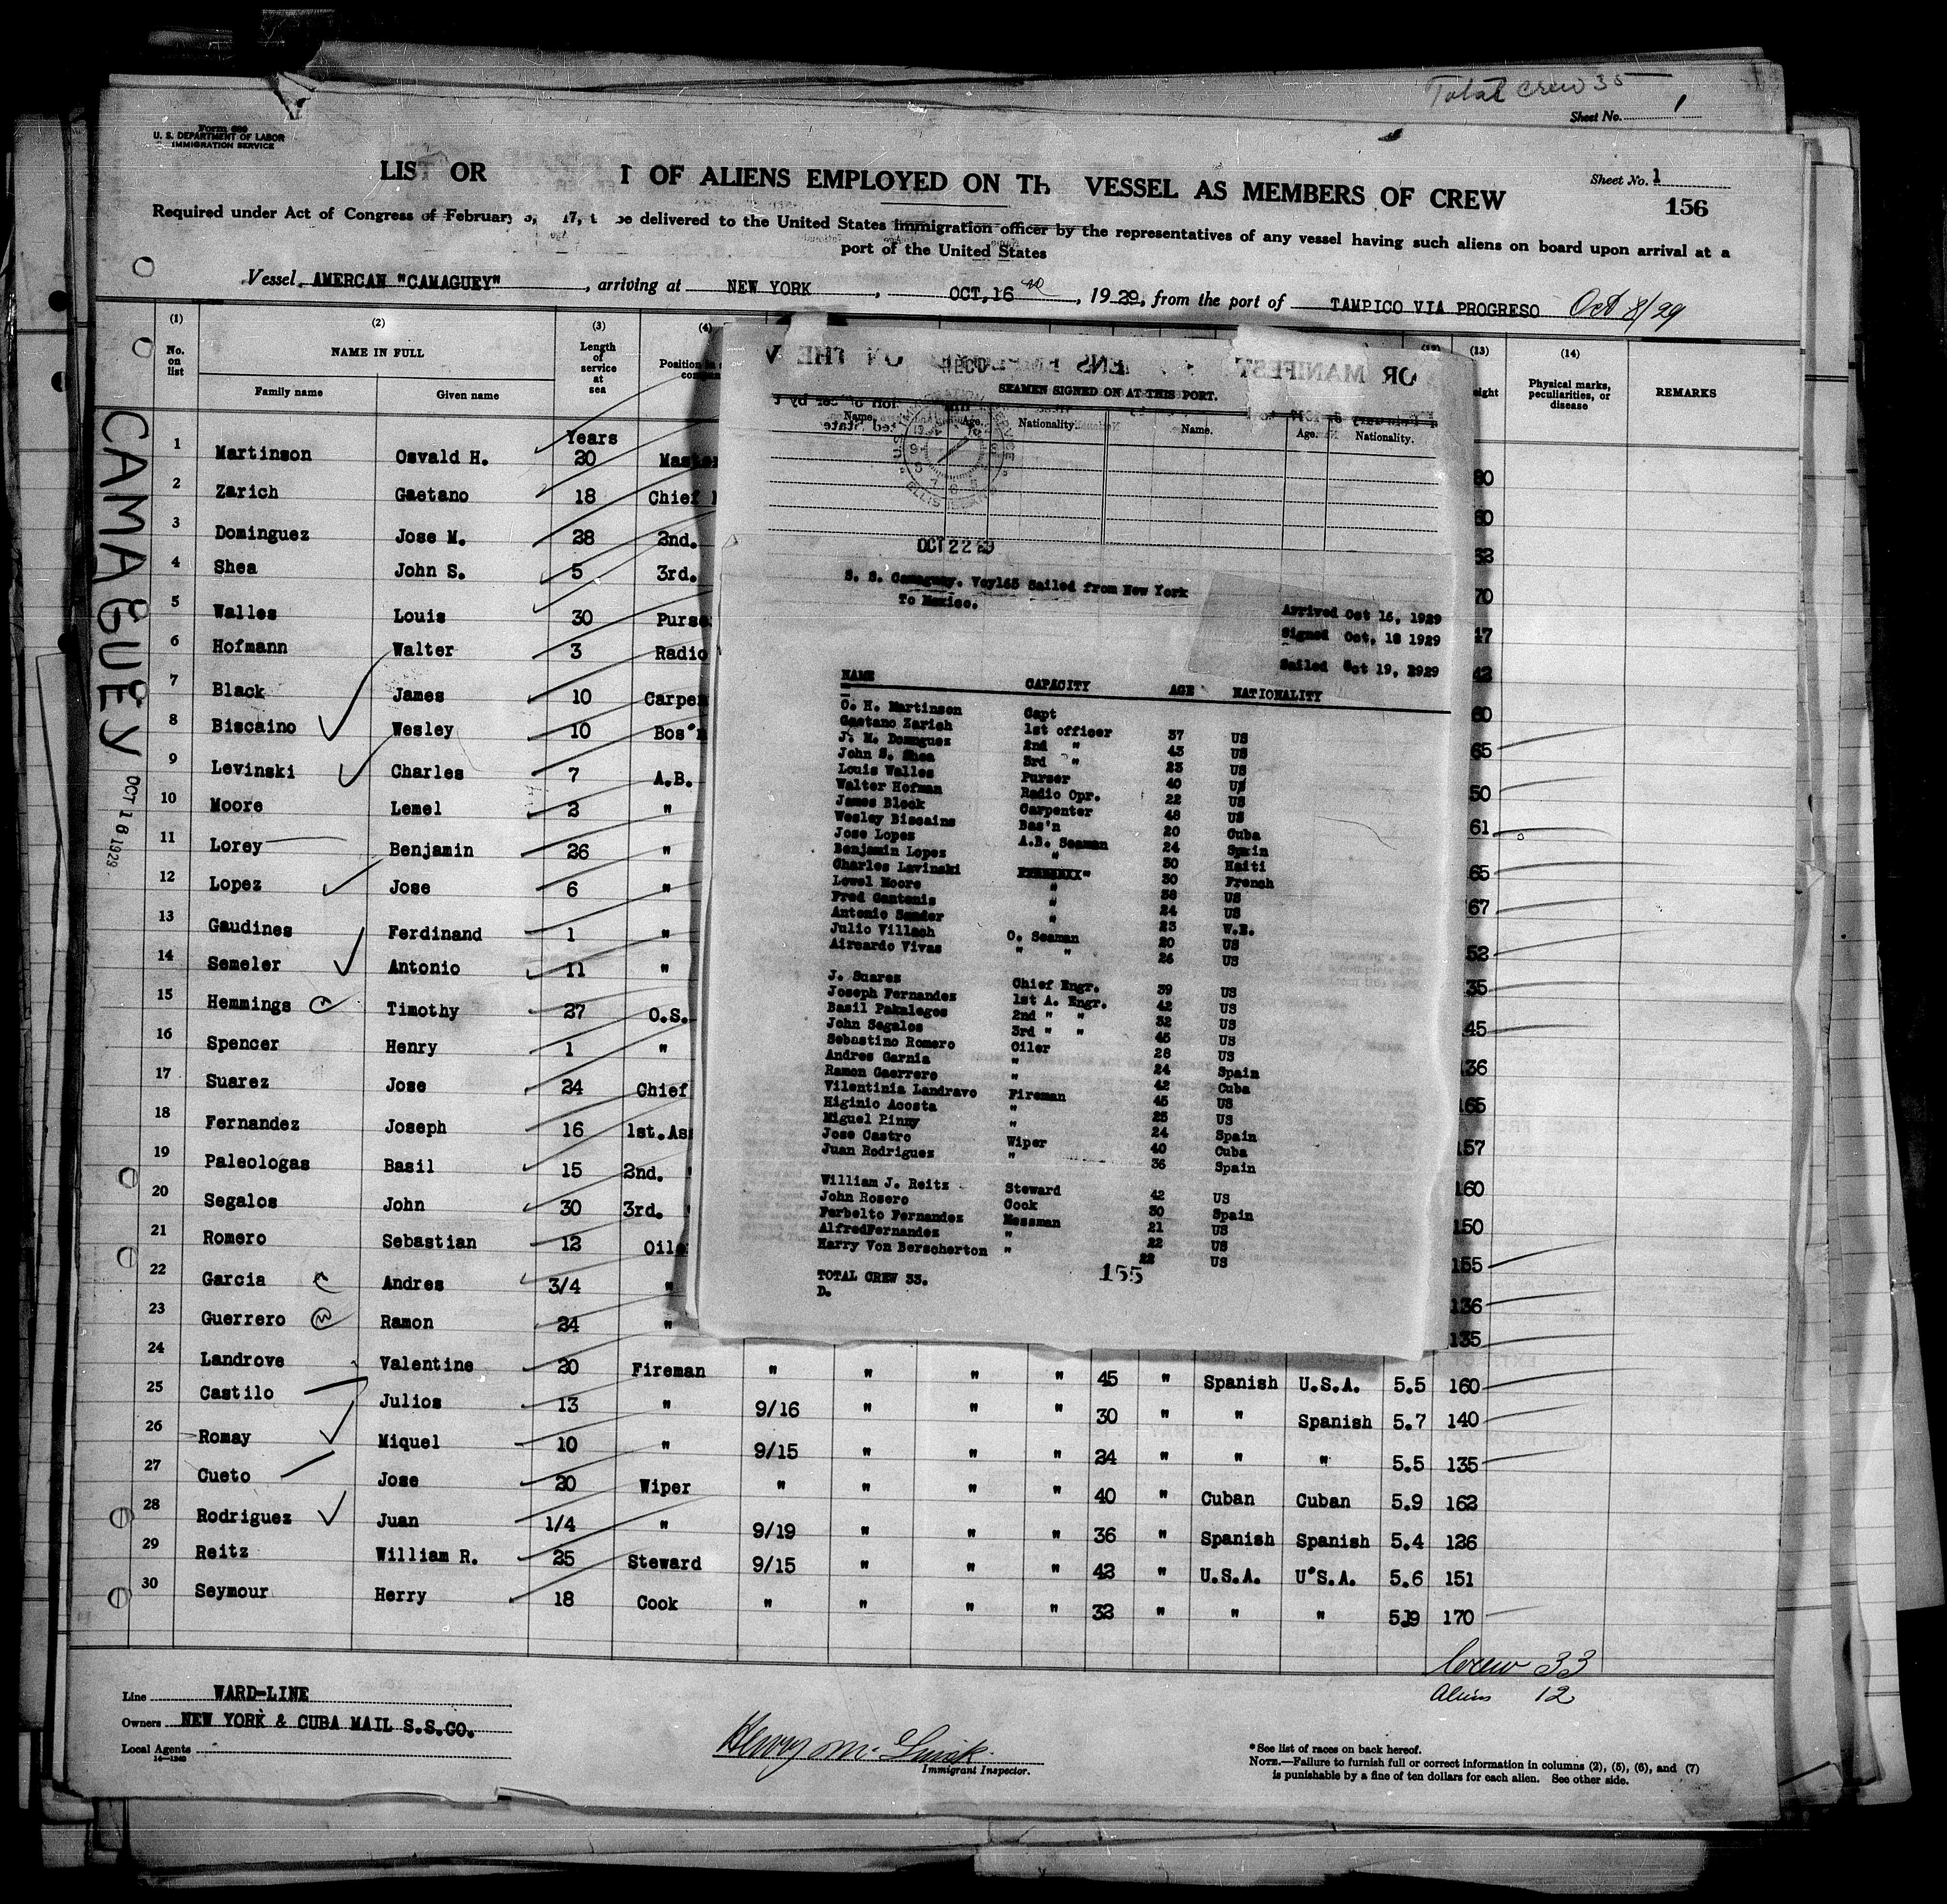 Total crew 35
Sheet No. 1
U. S. DEPARTMENT OF LABOR
IMMIGRATION SERVICE
LIST OR OF ALIENS EMPLOYED ON TH VESSEL AS MEMBERS OF CREW
Sheet No. 1
156
Required under Act of Congress of February 17, be delivered to the United States immigration officer by the representatives of any vessel having such aliens on board upon arrival at a
port of the United States
Vessel AMERCAN "CAMAGUEY", arriving at NEW YORK, OCT, 16, 1929, from the port of TAMPICO VIA PROGRESO Oct 8/29
(1) (2) (3) (4) (13) (14)
No. on list NAME IN FULL Length of service at sea Position Physical marks, peculiarities, or disease REMARKS
Family name Given name
CAMAGUEY
OCT 16 1929
Years
1 Martinson Osvald H. 20
2 Zarich Gaetano 18 Chief
3 Dominguez Jose M. 28 2nd.
4 Shea John S. 5 3rd.
5 Walles Louis 30
6 Hofmann Walter 3 Radio
7 Black James 10
8 Biscaino Wesley 10 65
9 Levinski Charles 7 A.B. 50
10 Moore Lemel 2 " 61
11 Lorey Benjamin 26 " 65
12 Lopez Jose 6 " 67
13 Gaudines Ferdinand 1 " 52
14 Semeler Antonio 11 " 35
15 Hemmings Timothy 27 O.S. 45
16 Spencer Henry 1 " 136
17 Suarez Jose 24 Chief 165
18 Fernandez Joseph 16 1st. 157
19 Paleologas Basil 15 2nd. 160
20 Segalos John 30 3rd. 150
21 Romero Sebastian 12 155
22 Garcia Andres 3/4 " 136
23 Guerrero Ramon 24 " 135
24 Landrove Valentine 20 Fireman " " " " 45 " Spanish U.S.A. 5.5 160
25 Castilo Julios 13 " 9/16 " " " 30 " " Spanish 5.7 140
26 Romay Miquel 10 " 9/15 " " " 24 " " " 5.5 135
27 Cueto Jose 20 Wiper " " " " 40 " Cuban Cuban 5.9 162
28 Rodriguez Juan 1/4 " 9/19 " " " 36 " Spanish Spanish 5.4 126
29 Reitz William R. 25 Steward 9/15 " " " 42 " U.S.A. U'S.A. 5.6 151
30 Seymour Herry 18 Cook " " " " 32 " " " 5.9 170
Crew 33
Aliens 12
Line WARD-LINE
Owners NEW YORK & CUBA MAIL S.S.CO.
Local Agents
14—1240
Immigrant Inspector.
*See list of races on back hereof.
NOTE.—Failure to furnish full or correct information in columns (2), (5), (6), and (7)
is punishable by a fine of ten dollars for each alien. See other side.
SEAMEN SIGNED ON AT THIS PORT.
Name. Age. Nationality. Name. Age. Nationality.
OCT 22 29
S. S. Camaguey. Voy165 Sailed from New York
To Mexico.
Arrived Oct 16, 1929
Signed Oct, 18 1929
Sailed Oct 19, 2929
NAME CAPACITY AGE NATIONALITY
O. H. Martinson Capt
Gaetano Zarich 1st officer 37 US
J. M. Domnguez 2nd " 43 US
John S. Shea 3rd " 23 US
Louis Walles Purser 40 US
Walter Hofman Radio Opr. 22 US
James Block Carpenter 48 US
Wesley Biscains Bos'n 20 Cuba
Jose Lopez A.B. Seaman 24 Spain
Benjamin Lopez " 50 Haiti
Charles Lavinski " 30 French
Lowel Moore " 38 US
Fred Gantenis " 24 US
Antonio Sander 23 W.B.
Julio Villach O. Seaman 20 US
Aircardo Vivas " " 26 US
J. Suares Chief Engr. 39 US
Joseph Fernandes 1st A. Engr. 42 US
Basil Pakaleges 2nd " " 32 US
John Segalos 3rd " " 45 US
Sebastino Romero Oiler 28 US
Andres Garnia " 24 Spain
Ramon Gaerrero " 42 Cuba
Vilentinia Landravo Fireman 45 US
Higinio Acosta " 25 US
Miguel Pinny " 24 Spain
Jose Castro Wiper 40 Cuba
Juan Rodriguez " 36 Spain
William J. Reitz Steward 42 US
John Rosero Cook 30 Spain
Ferbelto Fernandez Messman 21 US
AlfredFernandez " 22 US
Harry Von Berscherton " 22 US
TOTAL CREW 33.
D.
155